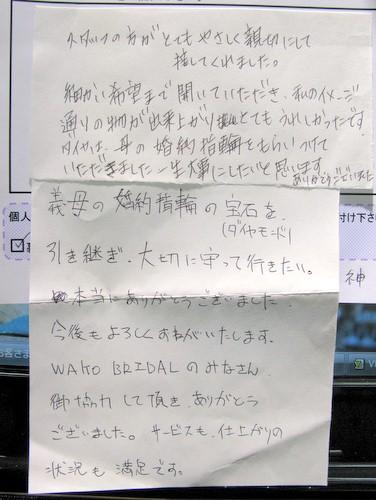 スタッフの方がとてもやさしく親切にして
接してくれました。
細かい希望まで聞いていただき、私のイメージ
通りの物が出来上がりとてもうれしかったです。
ダイヤは、母の婚約指輪をもらいつけて
いただきました一生大事にしたいと思います。
ありがとうございました
義母の婚約指輪の宝石を、
(ダイヤモンド)
引き継ぎ、大切に守って行きたい。
本当にありがとうございました。
今後もよろしくおねがいいたします。
WAKO BRIDALのみなさん
御協力して頂き、ありがとう
ございました。サービスも、仕上がりの
状況も満足です。
個人
付け下さ
神